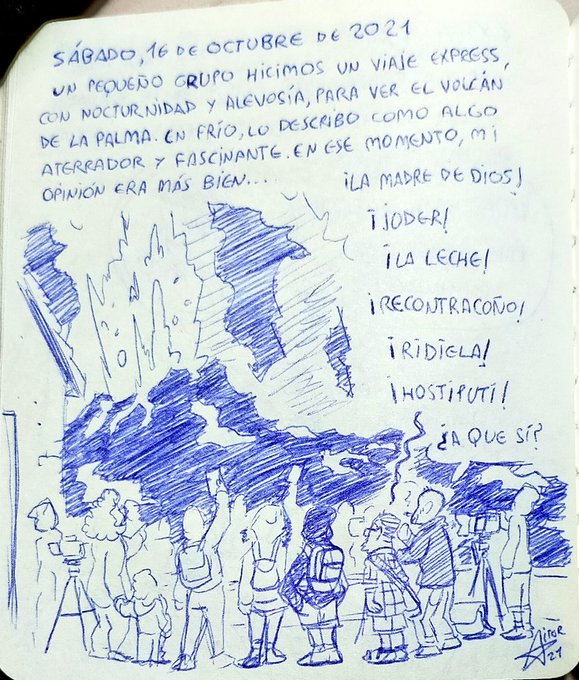 SÁBADO, 16 DE OCTUBRE DE 2021
UN PEQUEÑO GRUPO HICIMOS UN VIAJE EXPRESS,
CON NOCTURNIDAD Y ALEVOSÍA, PARA VER EL VOLCÁN
DE LA PALMA. EN FRÍO, LO DESCRIBO COMO ALGO
ATERRADOR Y FASCINANTE. EN ESE MOMENTO, MI
OPINIÓN ERA MÁS BIEN....
¡LA MADRE DE DIOS!
¡JODER!
¡LA LECHE!
¡RECONTRACOÑO!
¡RIDIELA!
¡HOSTIPUTI!
¿A QUE SÍ?
AITOR
21